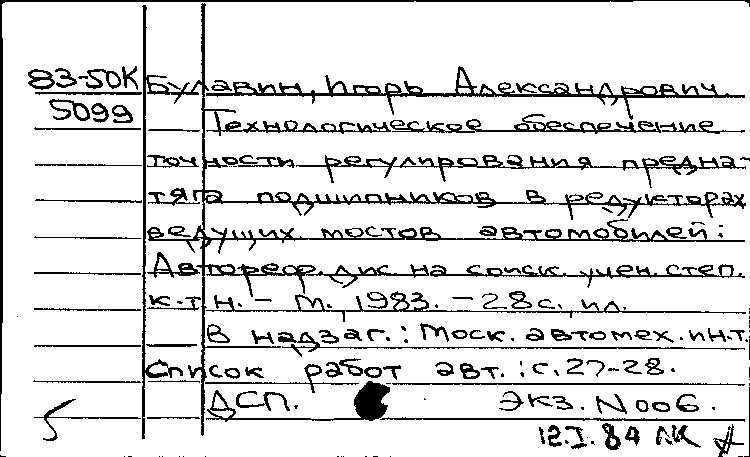 83-50К Булавин, Игорь Александрович.
5099 Технологическое обеспечение
точности регулирования предна-
тяга подшипников в редукторах
ведущих мостов автомобилей:
Автореф. дис. на соиск. учен. степ.
к.т.н. – М., 1983. – 28 с., ил.
В надзаг.: Моск. автомех. ин-т.
Список работ авт.: с. 27-28.
ДСП. Экз. N 006.
5 12.I.84 ЛК